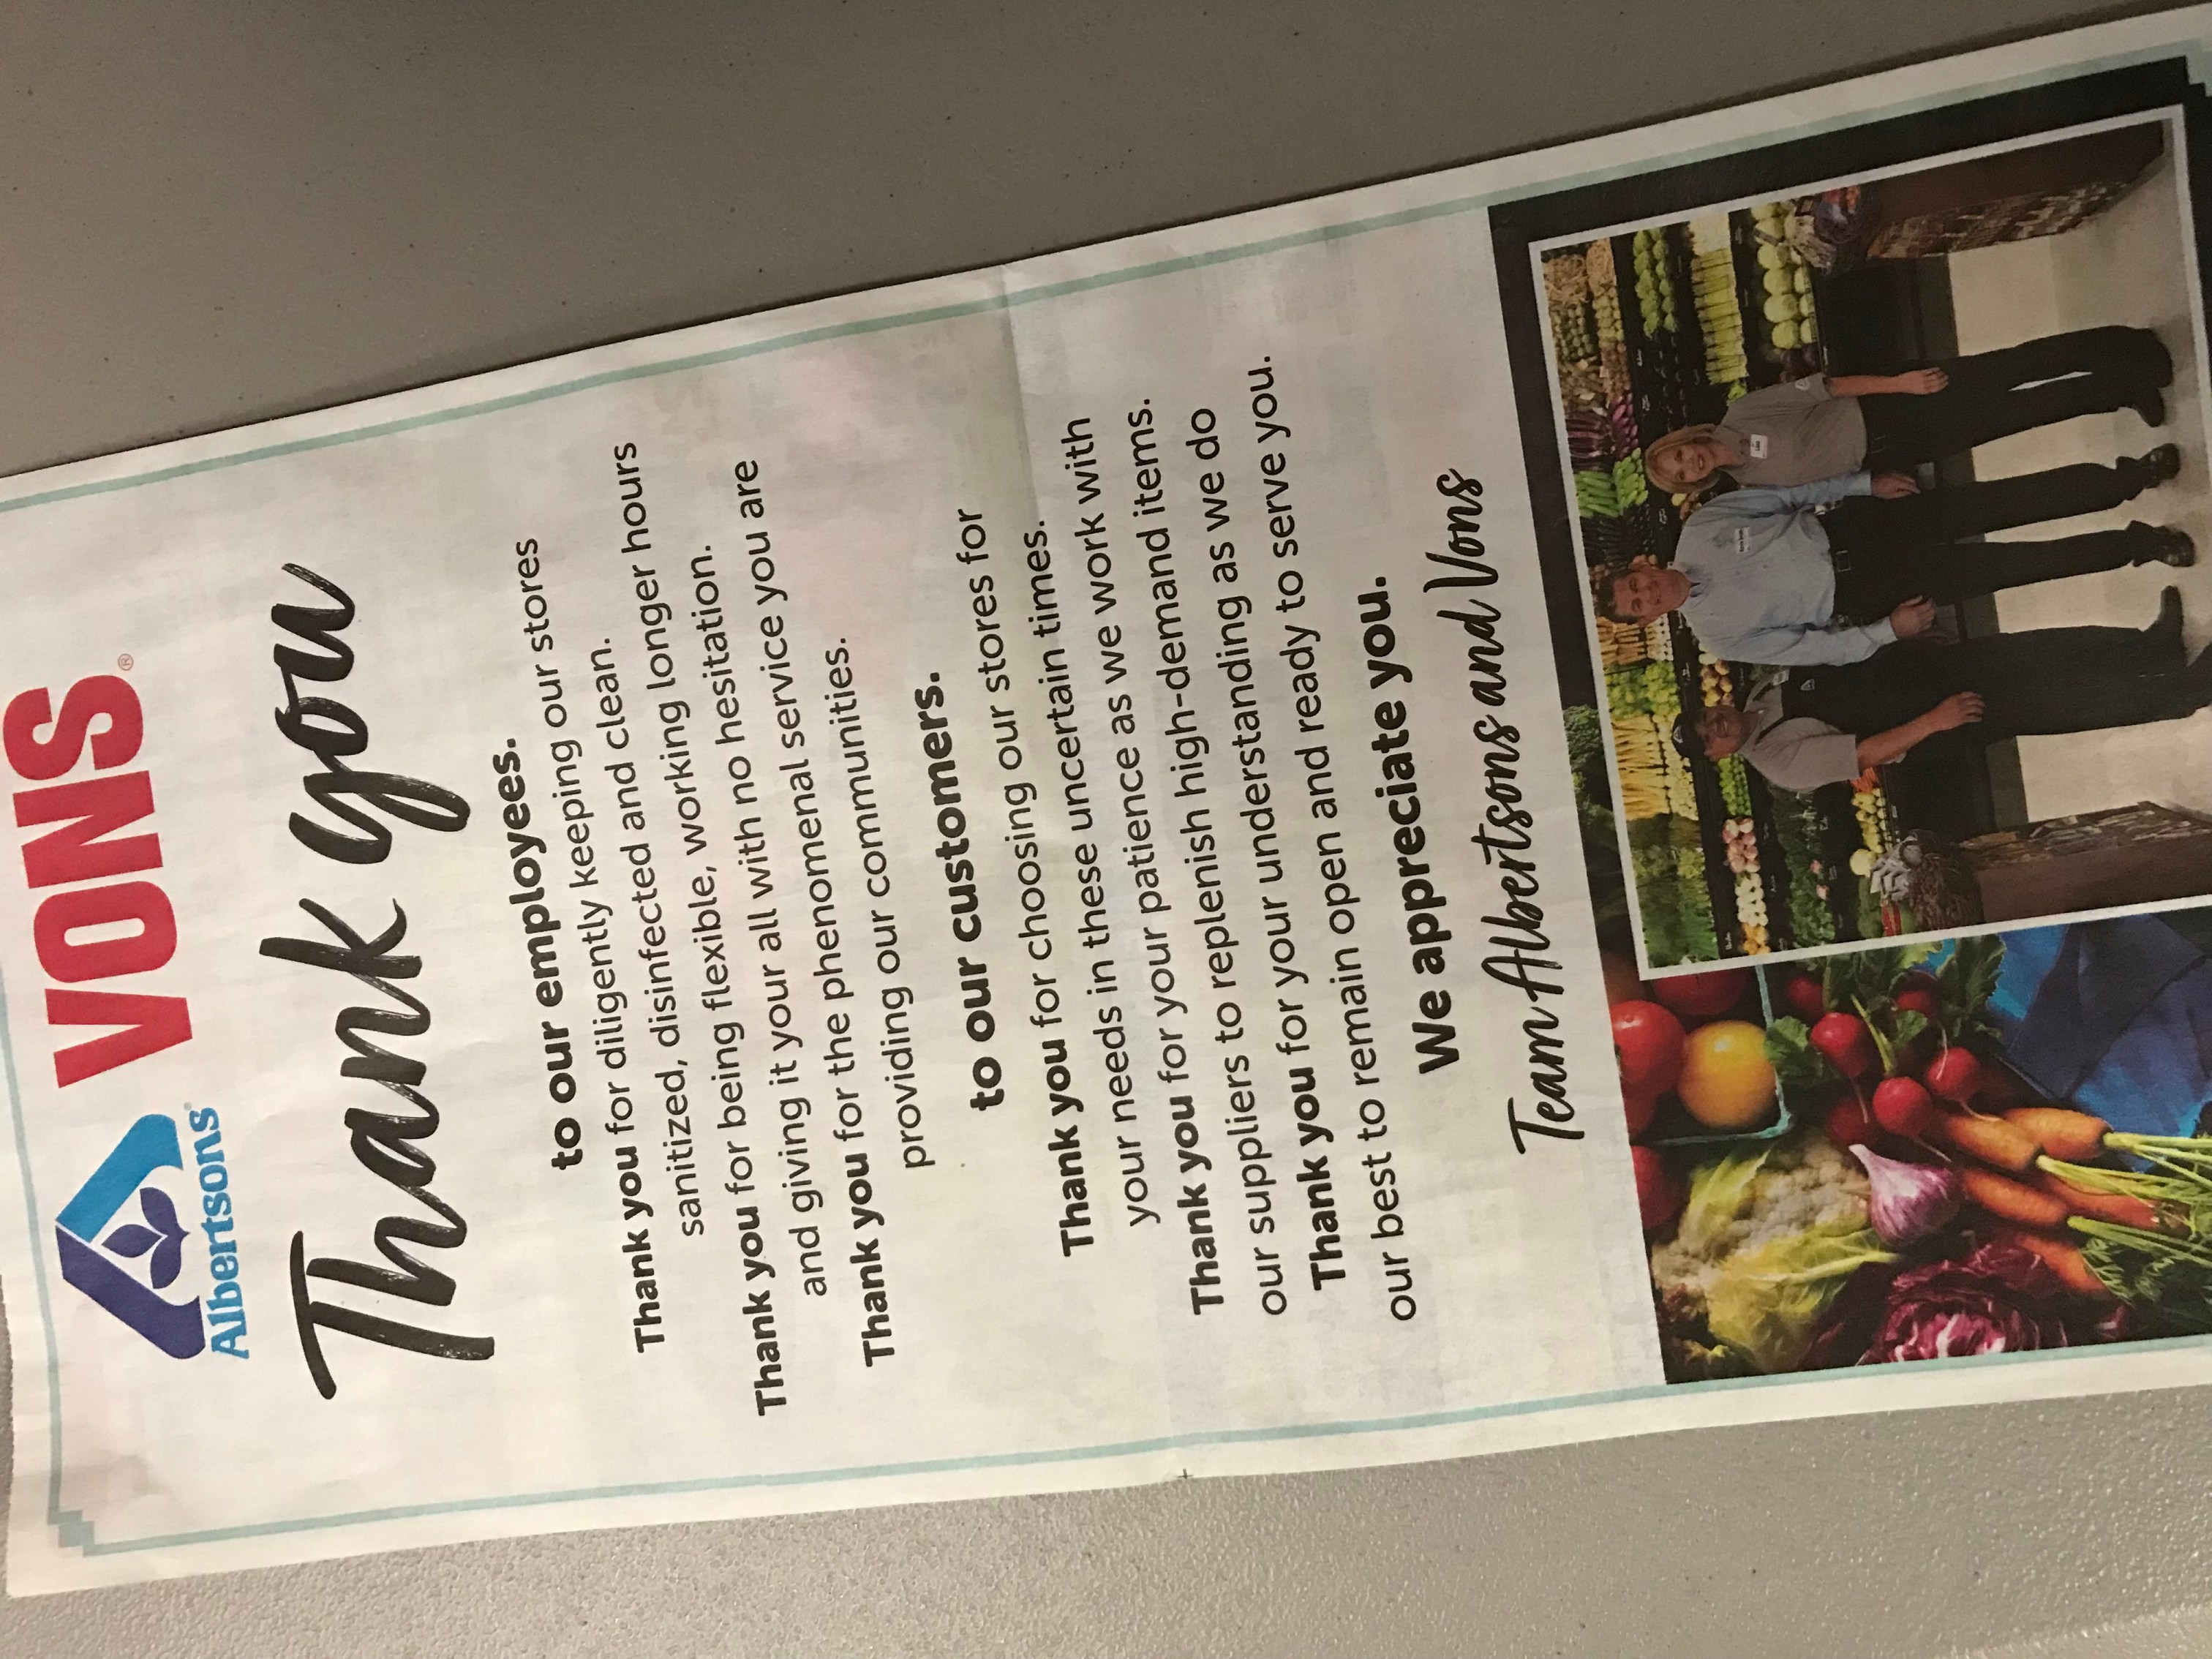 Albertsons® VONS®
Thank you
to our employees.
Thank you for diligently keeping our stores
sanitized, disinfected and clean.
Thank you for being flexible, working longer hours
and giving it your all with no hesitation.
Thank you for the phenomenal service you are
providing our communities.
to our customers.
Thank you for choosing our stores for
your needs in these uncertain times.
Thank you for your patience as we work with
our suppliers to replenish high-demand items.
Thank you for your understanding as we do
our best to remain open and ready to serve you.
We appreciate you.
Team Albertsons and Vons